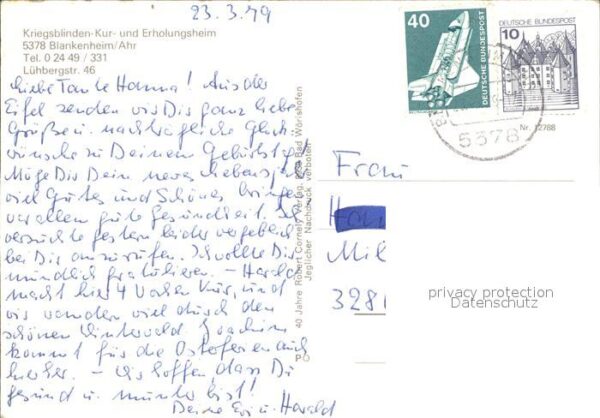 23.3.79
Kriegsblinden-Kur- und Erholungsheim
5378 Blankenheim/Ahr
Tel. 0 24 49 / 331
Lühbergstr. 46
Liebe Tante Hanna! Aus der
Eifel senden wir Dir ganz liebe
Grüße u. nachträgliche Glück-
wünsche zu Deinem Geburtstag.
Möge Dir Dein neues Lebensjahr
viel Gutes und Schönes bringen
vor allem gute Gesundheit. Ich
versuchte gestern leider vergeblich
bei Dir anzurufen. Ich wollte Dir
mündlich gratulieren. - Harald
macht hier 4 Wochen Kur, und
wir wandern viel durch den
schönen Winterwald. Joachim
kommt für die Osterferien auch
hierher. - Wir hoffen dass Du
gesund u. munter bist!
Deine Evi u. Harald
40 Jahre Robert Cornely Verlag, 8939 Bad Wörishofen
Jeglicher Nachdruck verboten
40
DEUTSCHE BUNDESPOST
DEUTSCHE BUNDESPOST
10
5378
Nr. 12788
Frau
Mil
328
privacy protection
Datenschutz